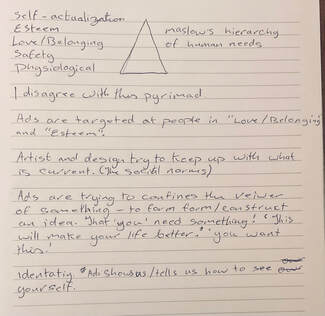 Self-actualization
Esteem
Love/Belonging
Safety
Physiological
maslows hierarchy
of human needs
I disagree with this pyrimad
Ads are targeted at people in "Love/Belonging"
and "Esteem".
Artist and design try to keep up with what
is current. (The social norms)
Ads are trying to confines the veiwer
of something - to form form/construct
an idea. That 'you' need something! 'This
will make your life better.' 'you want
this.'
identatiy. Ads shows us/tells us how to see
yourself.